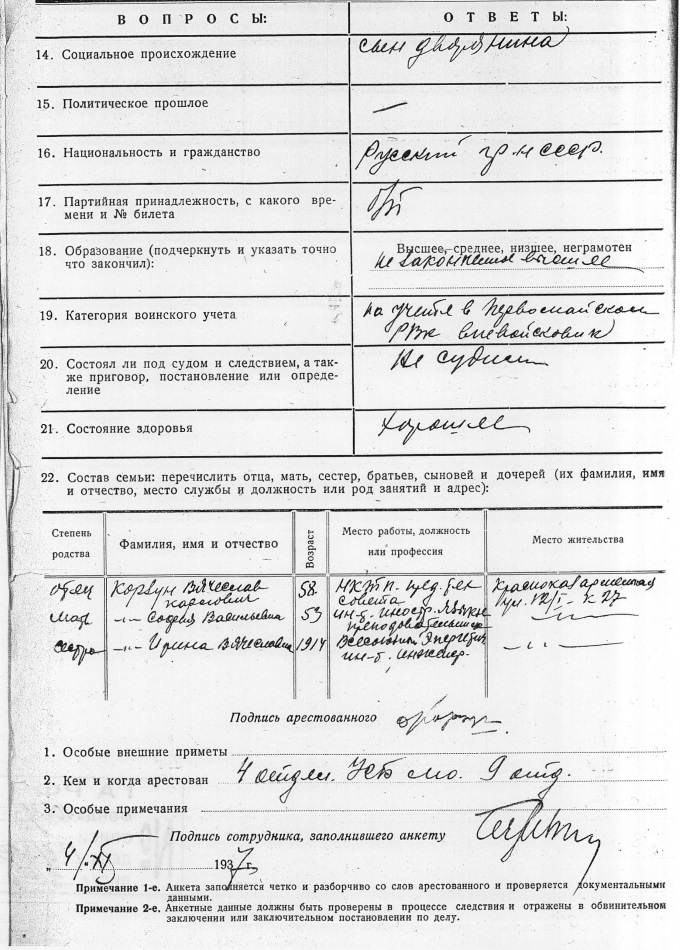 ВОПРОСЫ: ОТВЕТЫ:
14. Социальное происхождение сын дворянина
15. Политическое прошлое —
16. Национальность и гражданство Русский гр-н СССР.
17. Партийная принадлежность, с какого вре-
мени и № билета б/п
18. Образование (подчеркнуть и указать точно
что закончил):
Высшее, среднее, низшее, неграмотен
не законченное высшее
19. Категория воинского учета на учете в Первомайском
РВК вневойсковик
20. Состоял ли под судом и следствием, а так-
же приговор, постановление или опреде-
ление
Не судим
21. Состояние здоровья хорошее
22. Состав семьи: перечислить отца, мать, сестер, братьев, сыновей и дочерей (их фамилия, имя
и отчество, место службы и должность или род занятий и адрес):
Степень
родства
Фамилия, имя и отчество
Возраст
Место работы, должность
или профессия
Место жительства
отец Корвин Вячеслав 58. НКТП. Красноказарменная
совета 12/I - к 27
мать -"- София Васильевна 53 ин-т. иностр. языков -"-
сестра -"- Ирина Вячеславна 1914 Всесоюзный -"-
ин-т. инженер.
Подпись арестованного
1. Особые внешние приметы
2. Кем и когда арестован 4 отдел. УГБ МО. 9 отд.
3. Особые примечания
Подпись сотрудника, заполнившего анкету
4/XI 1937 г.
Примечание 1-е. Анкета заполняется четко и разборчиво со слов арестованного и проверяется документальными
данными.
Примечание 2-е. Анкетные данные должны быть проверены в процессе следствия и отражены в обвинительном
заключении или заключительном постановлении по делу.